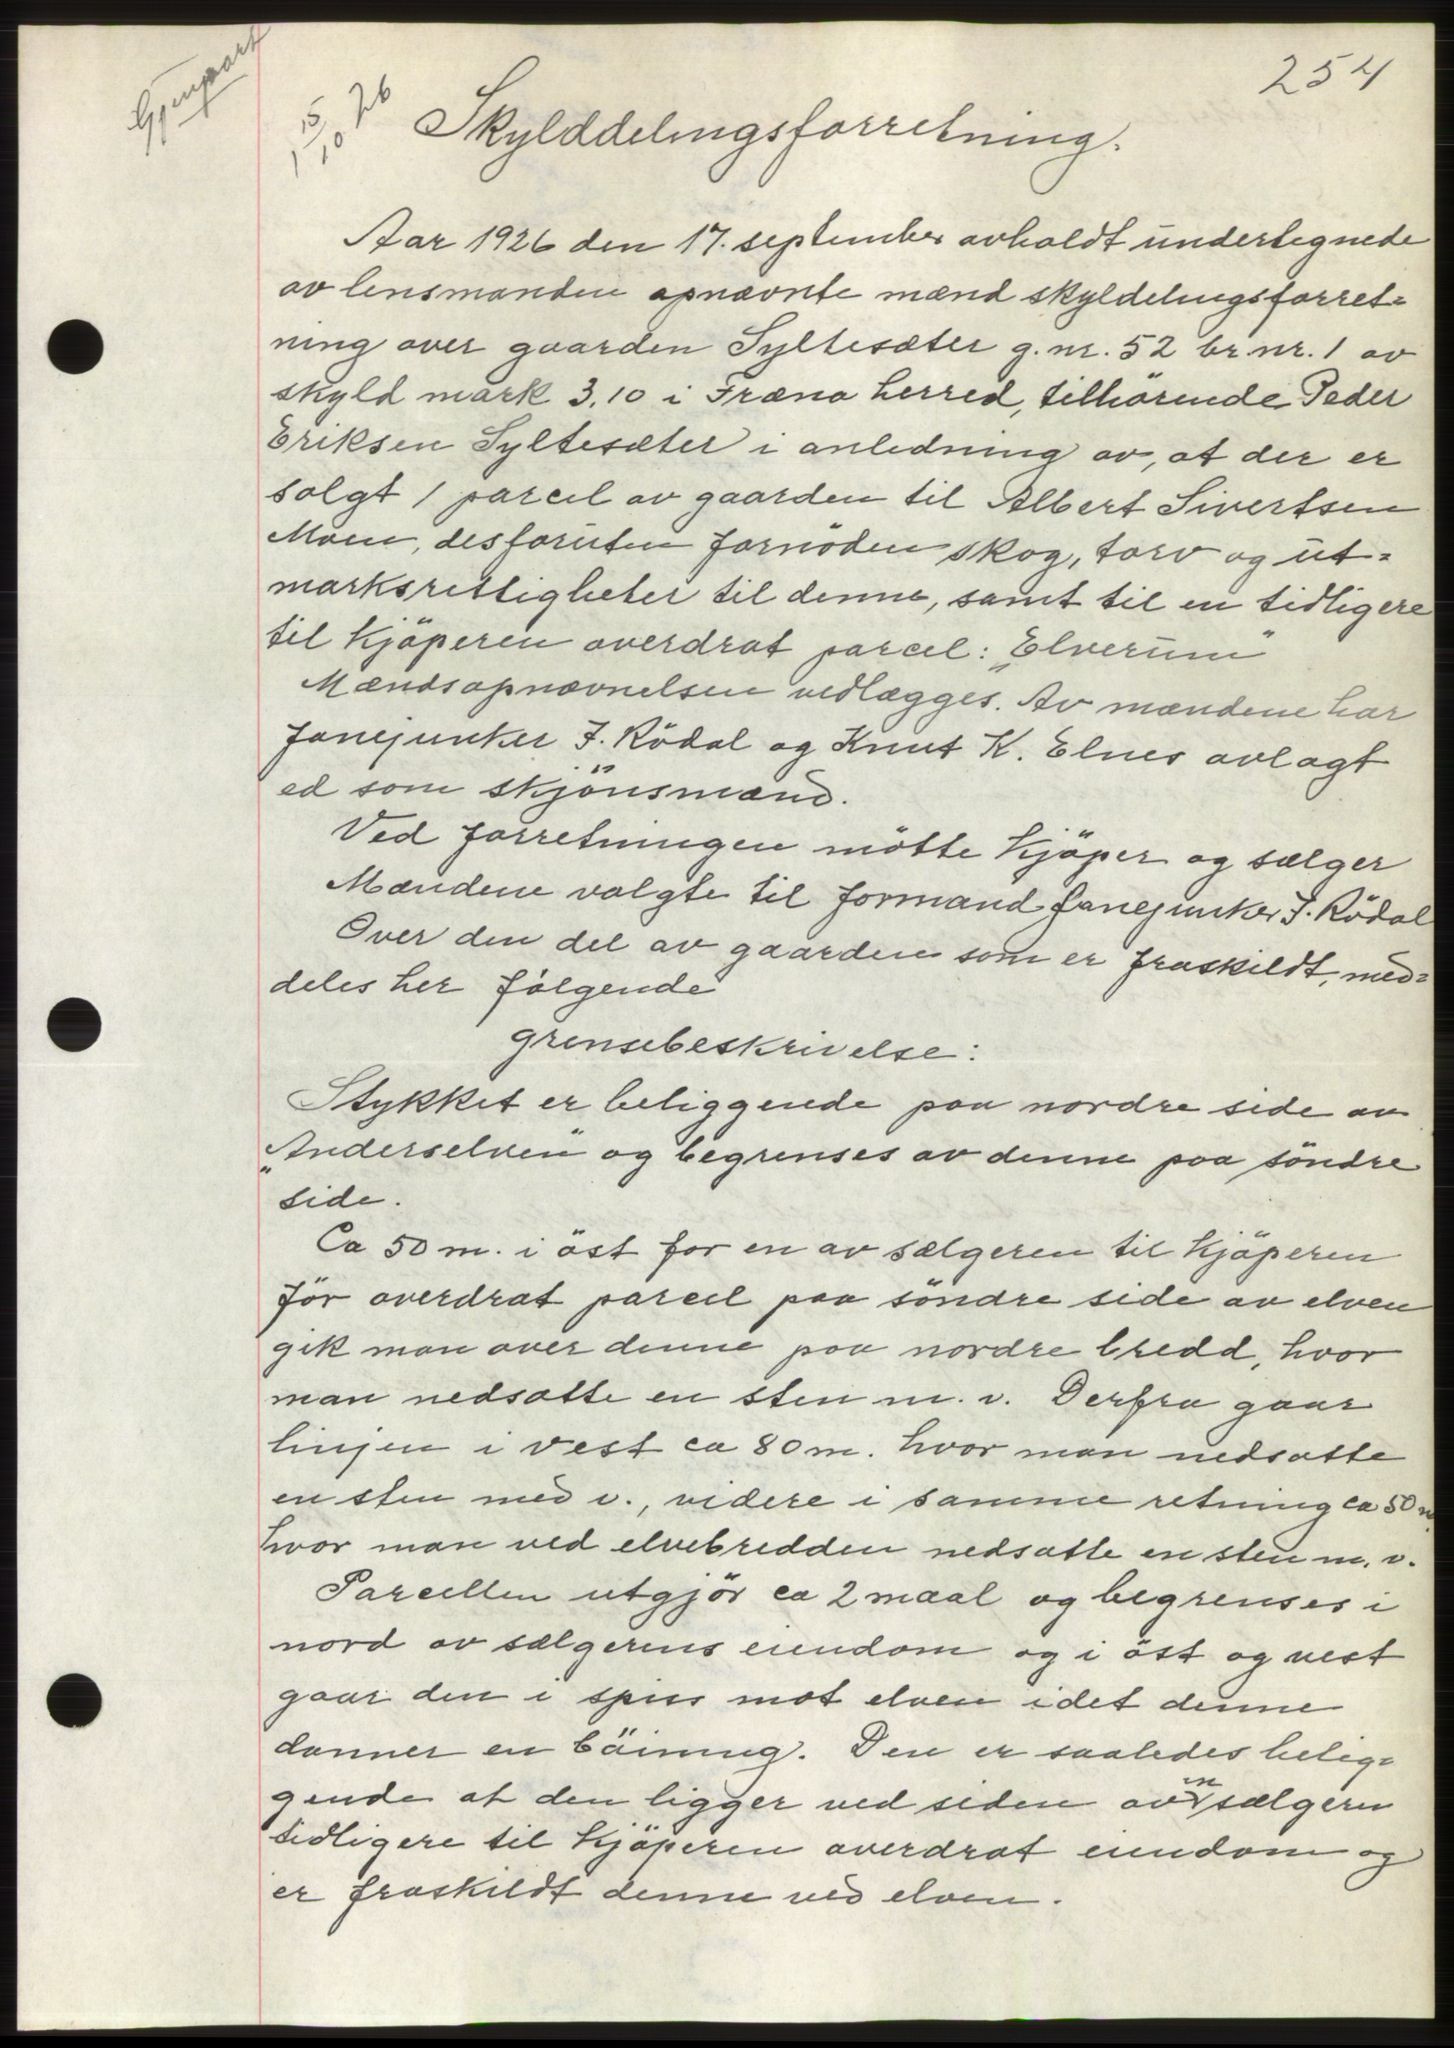 Gjenpart
254
1 15/10 26
Skylddelingsforretning.
Aar 1926 den 17. september avholdt undertegnede
av lensmanden opnævnte mænd skyldelingsforret=
ning over gaarden Syltesæter g. nr. 52 br. nr. 1 av
skyld mark 3,10 i Fræna herred, tilhörende Peder
Eriksen Syltesæter i anledning av, at der er
solgt 1 parcel av gaarden til Albert Sivertsen
Moen, desforuten fornöden skog, torv og ut=
marksrettigheter til denne, samt til en tidligere
til kjöperen overdrat parcel: "Elverum"
Mændsopnævnelsen vedlægges. Av mændene har
fanejunker J. Rödal og Knut K. Elnes avlagt
ed som skjönsmænd.
Ved forretningen mötte kjöper og sælger
Mændene valgte til formand fanejunker J. Rödal
Over den del av gaarden som er fraskildt, med=
deles her fölgende
grensebeskrivelse:
Stykket er beliggende paa nordre side av
"Anderselven" og begrenses av denne paa söndre
side.
Ca 50 m. i öst for en av sælgeren til kjöperen
för overdrat parcel paa söndre side av elven
gik man over denne paa nordre bredd, hvor
man nedsatte en sten m. v. Derfra gaar
linjen i vest ca 80 m. hvor man nedsatte
en sten med v., videre i samme retning ca 50 m
hvor man ved elvebredden nedsatte en sten m. v.
Parcellen utgjör ca 2 maal og begrenses i
nord av sælgerens eiendom og i öst og vest
gaar den i spiss mot elven idet denne
danner en böining. Den er saaledes belig=
gende at den ligger ved siden av en sælgeren
tidligere til kjöperen overdrat eiendom og
er fraskildt denne ved elven.